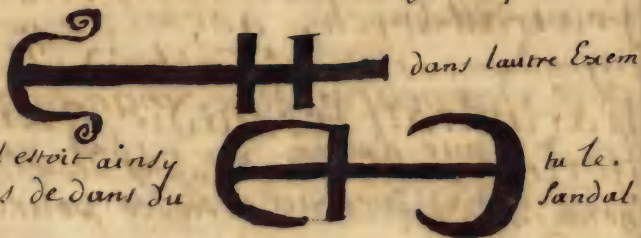 dans lautre Exem
l estoit ainsy tu le.
s de dans du sandal